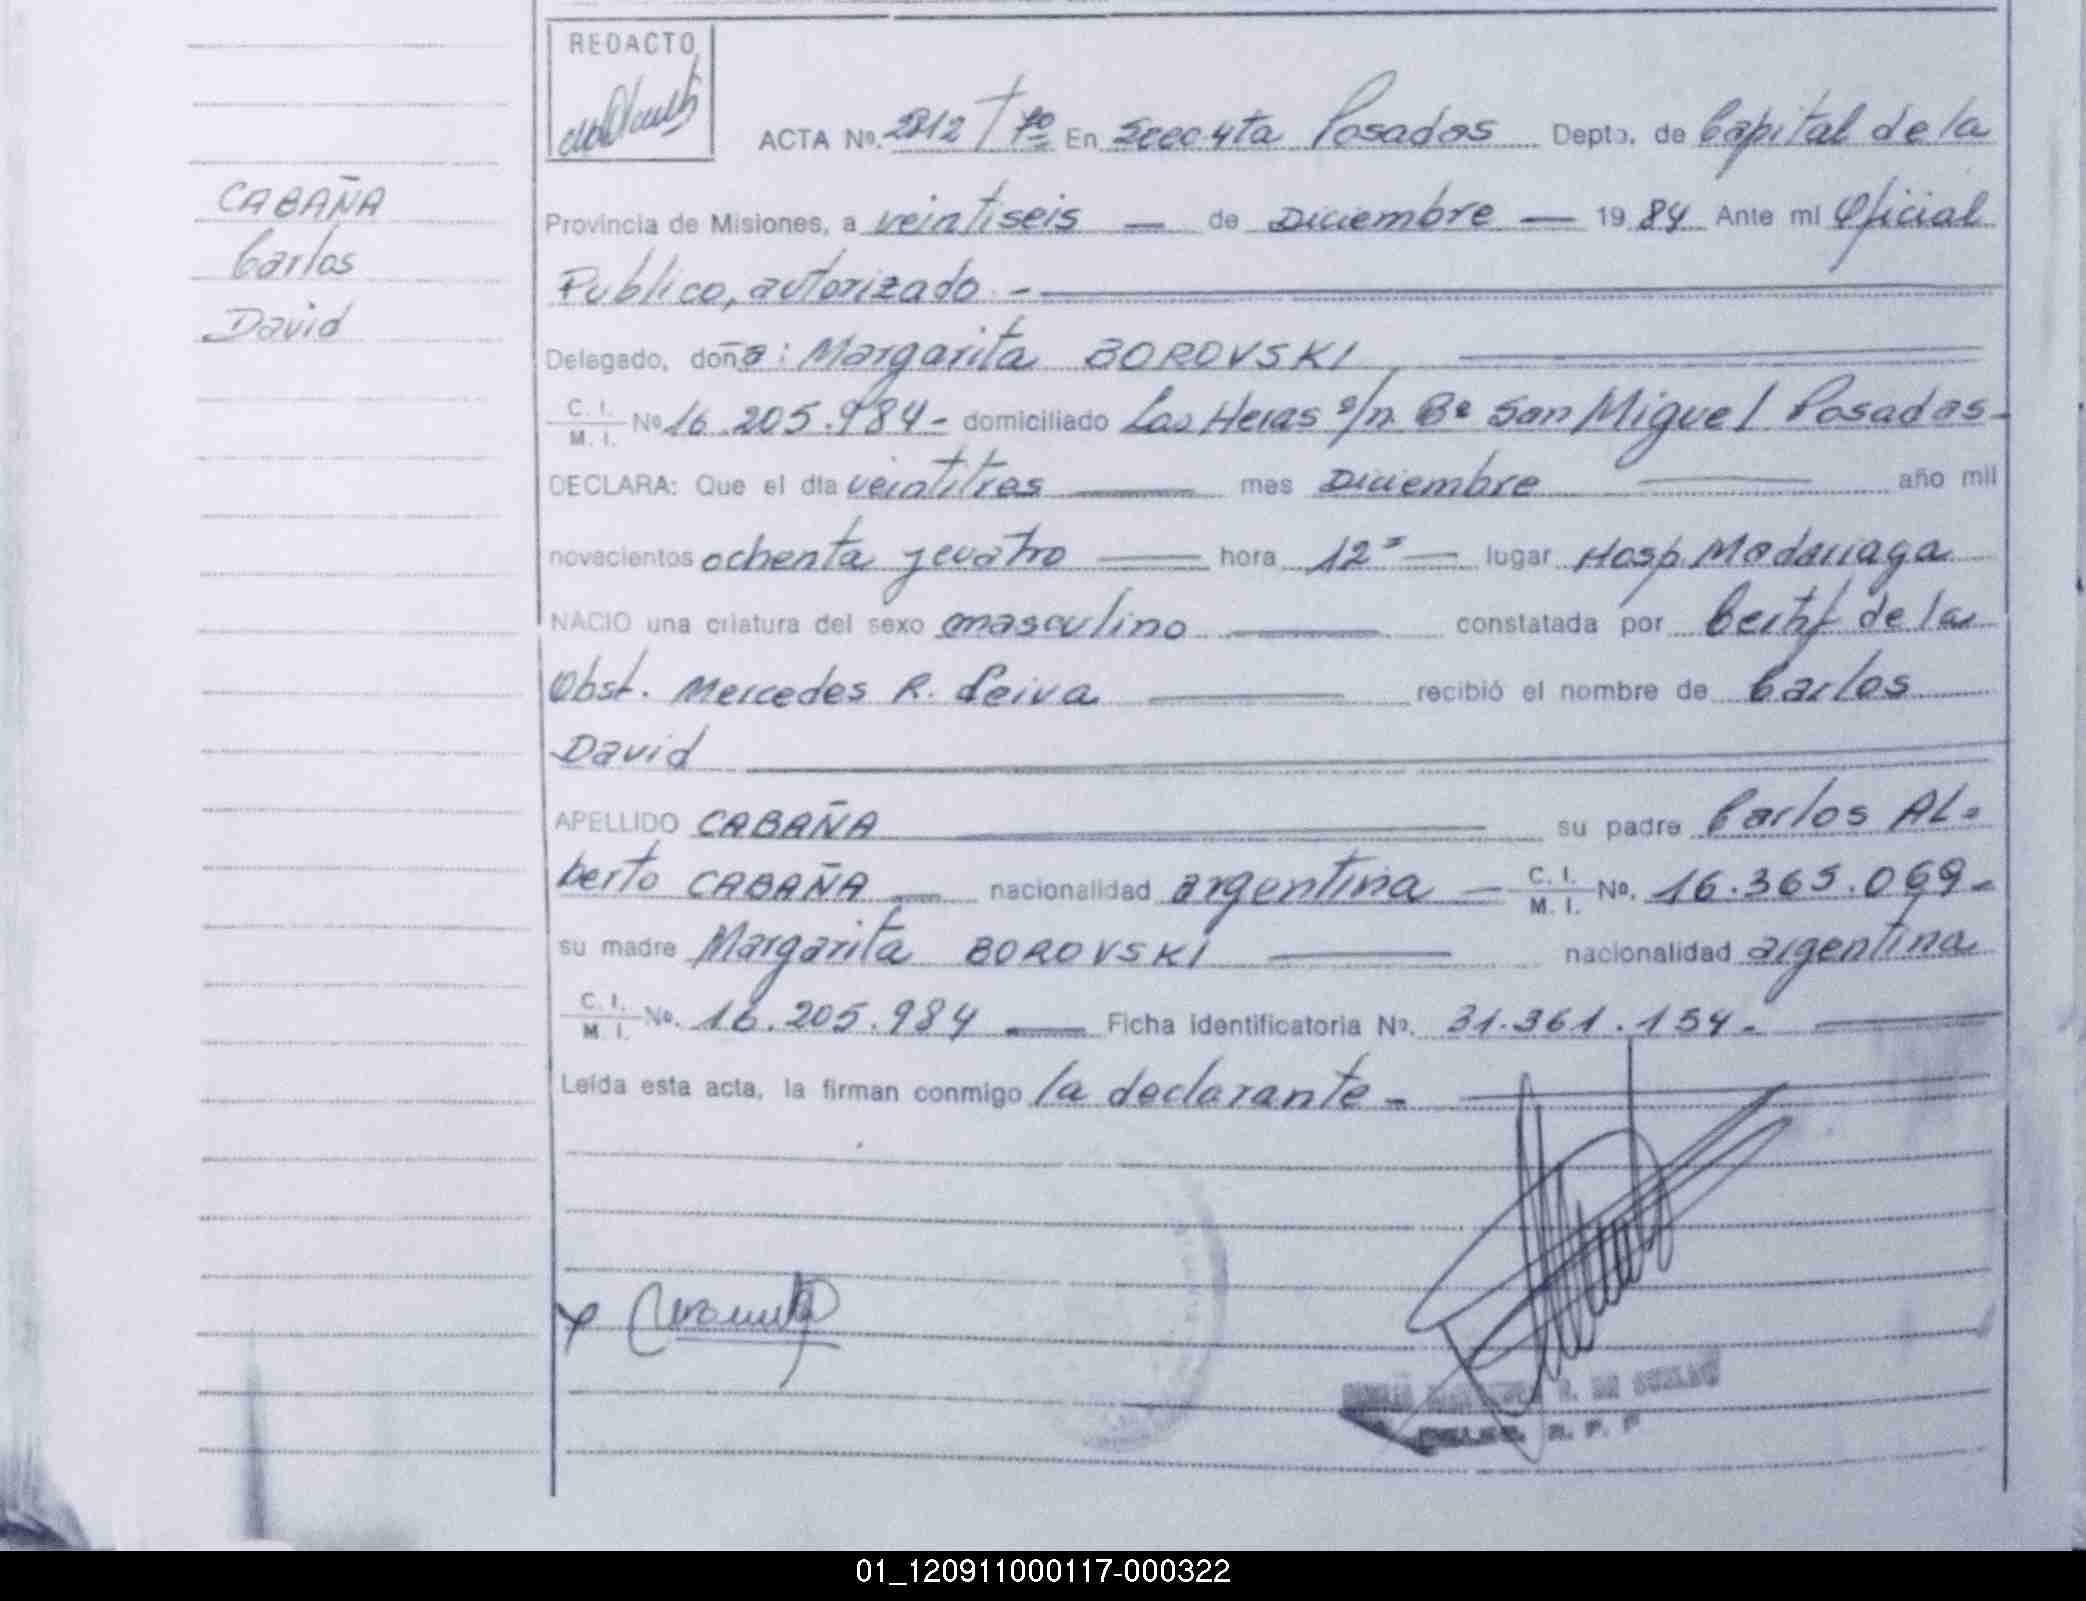 REDACTO
ACTA Nº. 2312 Tº En Secc. 4ta Posadas Depto. de Capital de la
CABAÑA
Carlos
David
Provincia de Misiones, a veintiseis — de Diciembre — 19 84 Ante mi Oficial
Publico, autorizado -
Delegado, doña: Margarita BOROVSKI
C. I. / M. I. Nº 16.205.984- domiciliado Las Heras s/n. Bº San Miguel Posadas-
DECLARA: Que el día veintitres — mes Diciembre — año mil
novecientos ochenta y cuatro — hora 12 — lugar Hosp. Madariaga
NACIO una criatura del sexo masculino — constatada por Certif de la
Obst. Mercedes R. Leiva — recibió el nombre de Carlos
David
APELLIDO CABAÑA — su padre Carlos AL-
berto CABAÑA — nacionalidad argentina — C. I. / M. I. Nº. 16.365.069-
su madre Margarita BOROVSKI — nacionalidad argentina
C. I. / M. I. Nº. 16.205.984 — Ficha identificatoria Nº. 31.361.154.-
Leída esta acta, la firman conmigo la declarante -
01_120911000117-000322